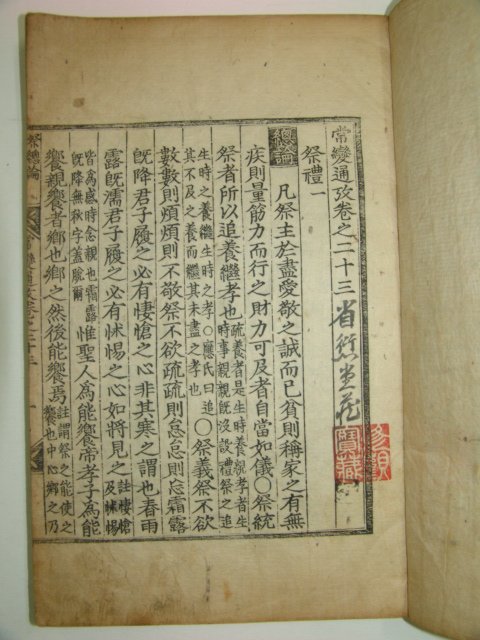 常變通攷卷之二十三 省愆堂藏
寶藏
祭禮一
總論 凡祭主於盡愛敬之誠而已貧則稱家之有無
疾則量筋力而行之財力可及者自當如儀〇祭統
祭者所以追養繼孝也疏養者是生時養親孝者生時事親親旣沒設禮祭之追
生時之養繼生時之孝〇應氏曰追其不及之養而繼其未盡之孝也〇祭義祭不欲
數數則煩煩則不敬祭不欲疏疏則怠怠則忘霜露
旣降君子履之必有悽愴之心非其寒之謂也春雨
露旣濡君子履之必有怵惕之心如將見之註悽愴及怵惕
皆爲感時念親也霜露旣降無秋字蓋脫爾惟聖人爲能饗帝孝子爲能
饗親饗者鄉也鄉之然後能饗焉註謂祭之能使之饗也中心鄉之乃
祭總論